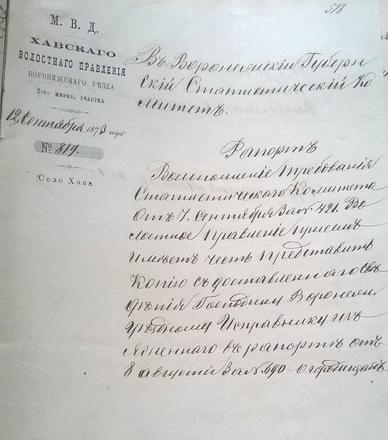 512
М. В. Д.
ХАВСКАГО
ВОЛОСТНАГО ПРАВЛЕНІЯ
ВОРОНЕЖСКАГО УѢЗДА
2-го миров. участка
12 Сентября 1873 года
№ 819.
Село Хава
Въ Воронежскій Губерн
скій Статистическій Ко
митетъ.
Рапортъ
Воисполненіе требованія
Статистическаго Комитета
Отъ 7. Сентября За № 421. Во
лостное Правленіе при семъ
имѣетъ честь представить
Копію съ доставленнаго свѣ
дѣнія Господину Воронеж.
уѣздному Исправнику изъ
ясненнаго въ рапортѣ отъ
8 августа За № 690